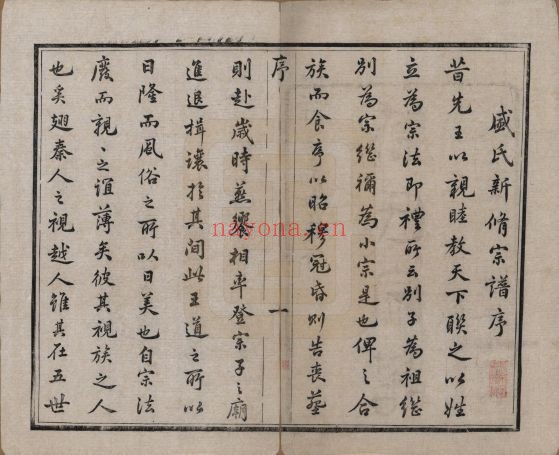 盛氏新脩宗譜序
昔先王以親睦教天下聯之以姓
立為宗法即禮所云別子為祖繼
別為宗繼禰為小宗是也俾之合
族而食序以昭穆冠昏則告喪葬
序
一
則赴歲時燕饗相率登宗子之廟
進退揖讓於其間此王道之所以
日隆而風俗之所以日美也自宗法
廢而親〻之誼薄矣彼其視族之人
也奚翅秦人之視越人雖其在五世
nayona.cn